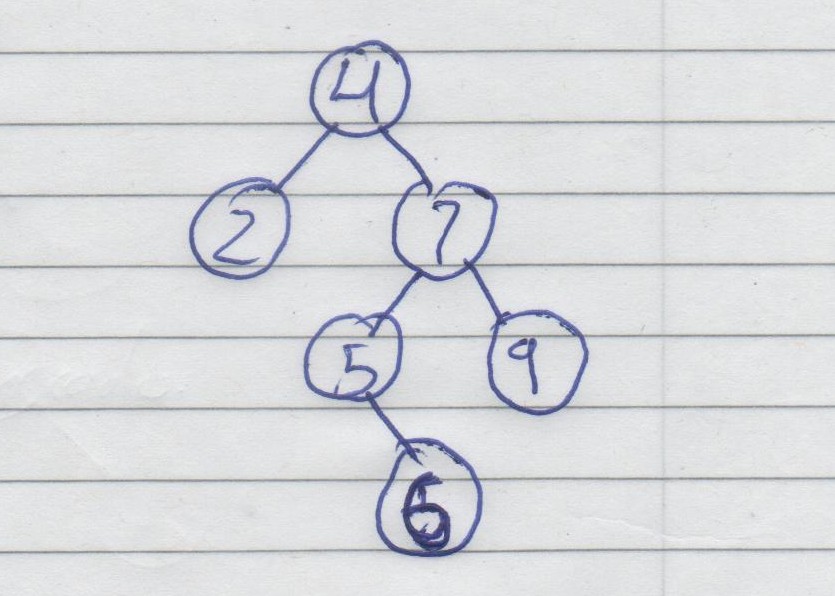 4
2 7
5 9
6